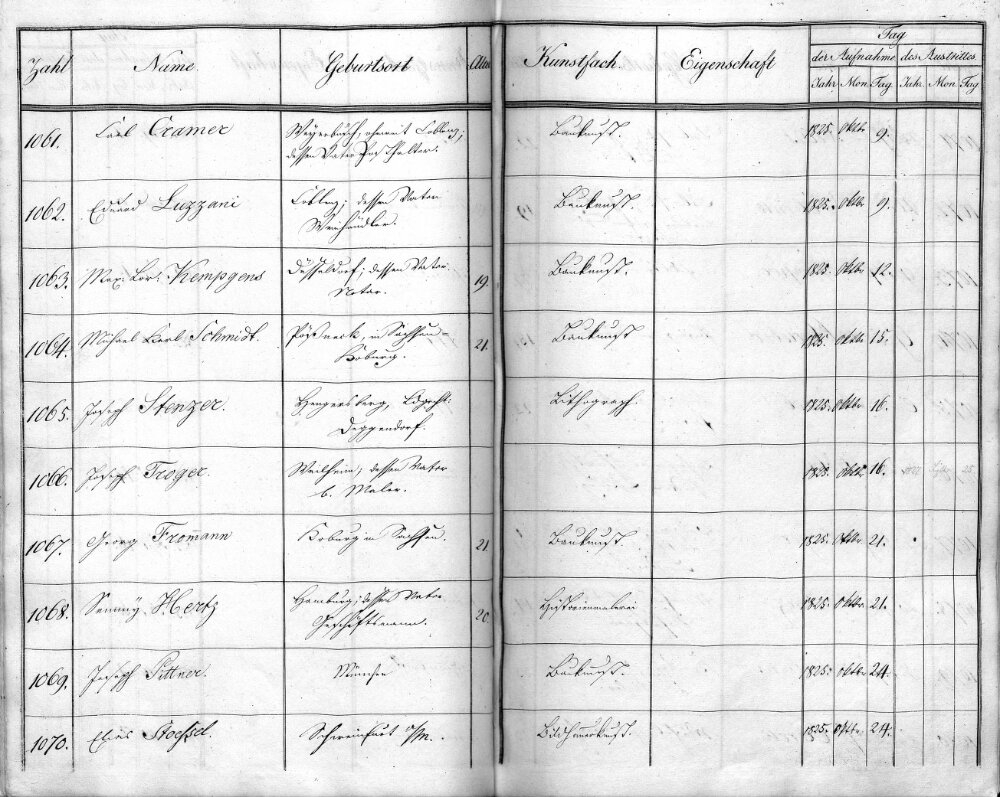 Tag
Zahl Name Geburtsort Alter Kunstfach Eigenschaft der Aufnahme des Austrittes
Jahr Mon Tag Jahr Mon Tag
1061. Carl Cramer Coblenz; Baukunst. 1825. Oktbr 9.
dessen Vater Posthalter.
1062. Eduard Luzzani Coblenz; dessen Vater Baukunst. 1825. Oktbr 9.
Weinhändler.
1063. Max: Lor: Kempgens Düsseldorf; dessen Vater 19. Baukunst. 1825. Oktbr 12.
Notar.
1064. Michael Carl Schmidt. Pößneck, in Sachsen 21. Baukunst 1825. Oktbr 15.
Koburg.
1065. Joseph Stenzer. Hengersberg, Ldgrcht. Lithograph. 1825. Oktbr 16.
Deggendorf.
1066. Joseph Troger. Weilheim; dessen Vater 1825. Oktbr 16.
b. Maler.
1067. Georg Fromann Koburg in Sachsen. 21. Baukunst. 1825. Oktbr 21.
1068. Hertz Hamburg; dessen Vater 20. Historienmalerei 1825. Oktbr 21.
Geschäftsmann.
1069. Joseph Sittner. München Baukunst. 1825. Oktbr 24.
1070. Elias Stoessel. Schweinfurt a/m. Bildhauerkunst. 1825. Oktbr 24.